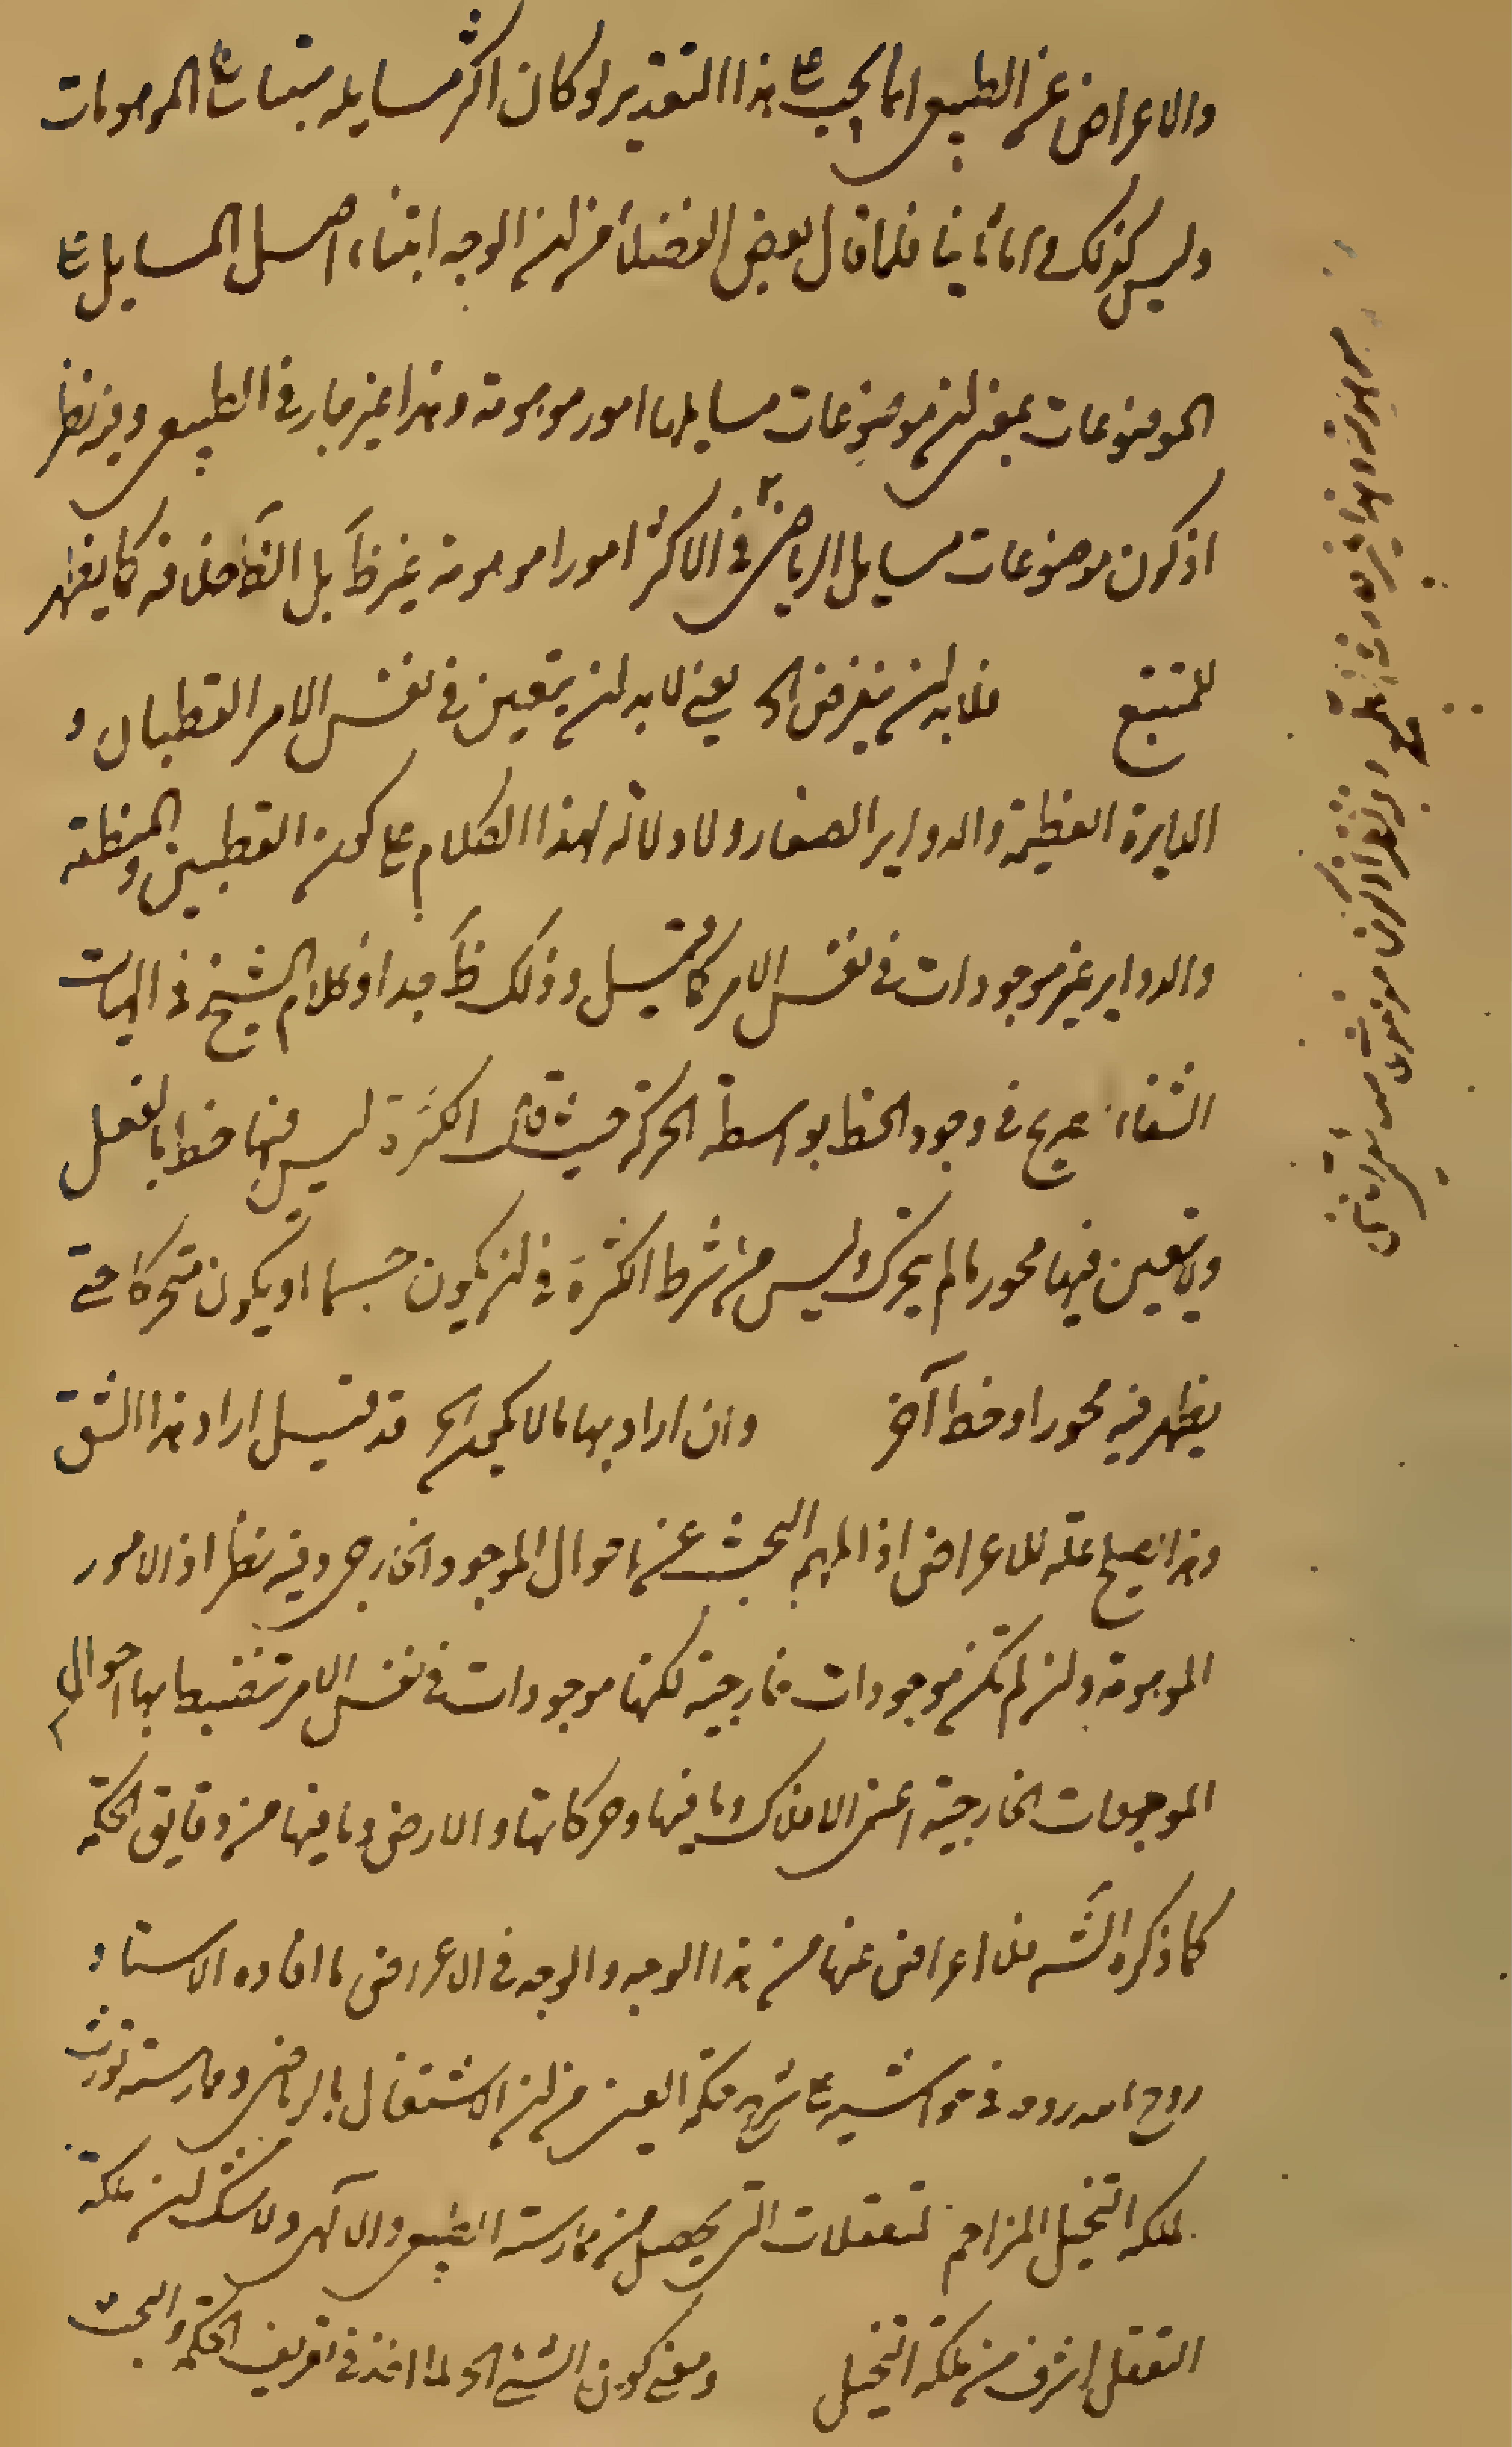 والاعراض عن الطبيعى انما يجب على هذا التقدير لو كان اكثر مسايله مبتنيا على الموهومات
وليس كذلك واما ثانيا فلما قال بعض الفضلأ من ان الوجه ابتناء اصل المسايل على
الموضوعات بمعنى ان موضوعات مسايلها امور موهومة وهذا غير جار فى الطبيعى وفيه نظر
اذ كون موضوعات مسايل الرياضى فى الاكثر امورا موهومة غير ظَ بل الظَ خلافه كما يظهر
للمتتبع فلابد ان ينفرض الخ يعنى لابد ان يتعين فى نفس الامر القطبان و
الدايرة العظيمة والدواير الصغار ولا دلالة لهذا الكلام على كون القطبين والمنطقة
والدواير غير موجودات فى نفس الامر كما قيل وذلك ظَ جدا وكلام الشيخ فى الهيات
الشفاء صريح فى وجود الخط بواسطة الحركة حيث قال الكرة ليس فيها خط بالفعل
ولا يتعين فيها محور ما لم يتحرك وليس من شرط الكرة فى ان يكون جسما او يكون متحركا حتى
يظهر فيه محور او خط آخر وان اراد بها ما لا يكون الخ قد قيل اراد هذا الشق
وهذا يصلح علة للاعراض اذ المهم البحث عن احوال الموجود الخارجى وفيه نظر اذ الامور
الموهومة وان لم تكن موجودات خارجية لكنها موجودات فى نفس الامر تنضبط بها احوال
الموجودات الخارجية اعنى الافلاك وما فيها وحركاتها والارض وما فيها من دقايق الحكمة
كما ذكره الشَ فلا اعراض عنها من هذا الوجه والوجه فى الاعراض ما افاده الاستاد
روح الله روحه فى حواشيه على شرح حكمة العين من ان الاشتغال بالرياضى وممارسته تورث
ملكة التخيل المزاحم لتعقلات التى يحصل من ممارسة الطبيعى والآلهى ولا شك ان ملكة
التعقل اشرف من ملكة التخيل ومعنى كون الشئ الخ لما اخذ فى تعريف الحكمة البحث